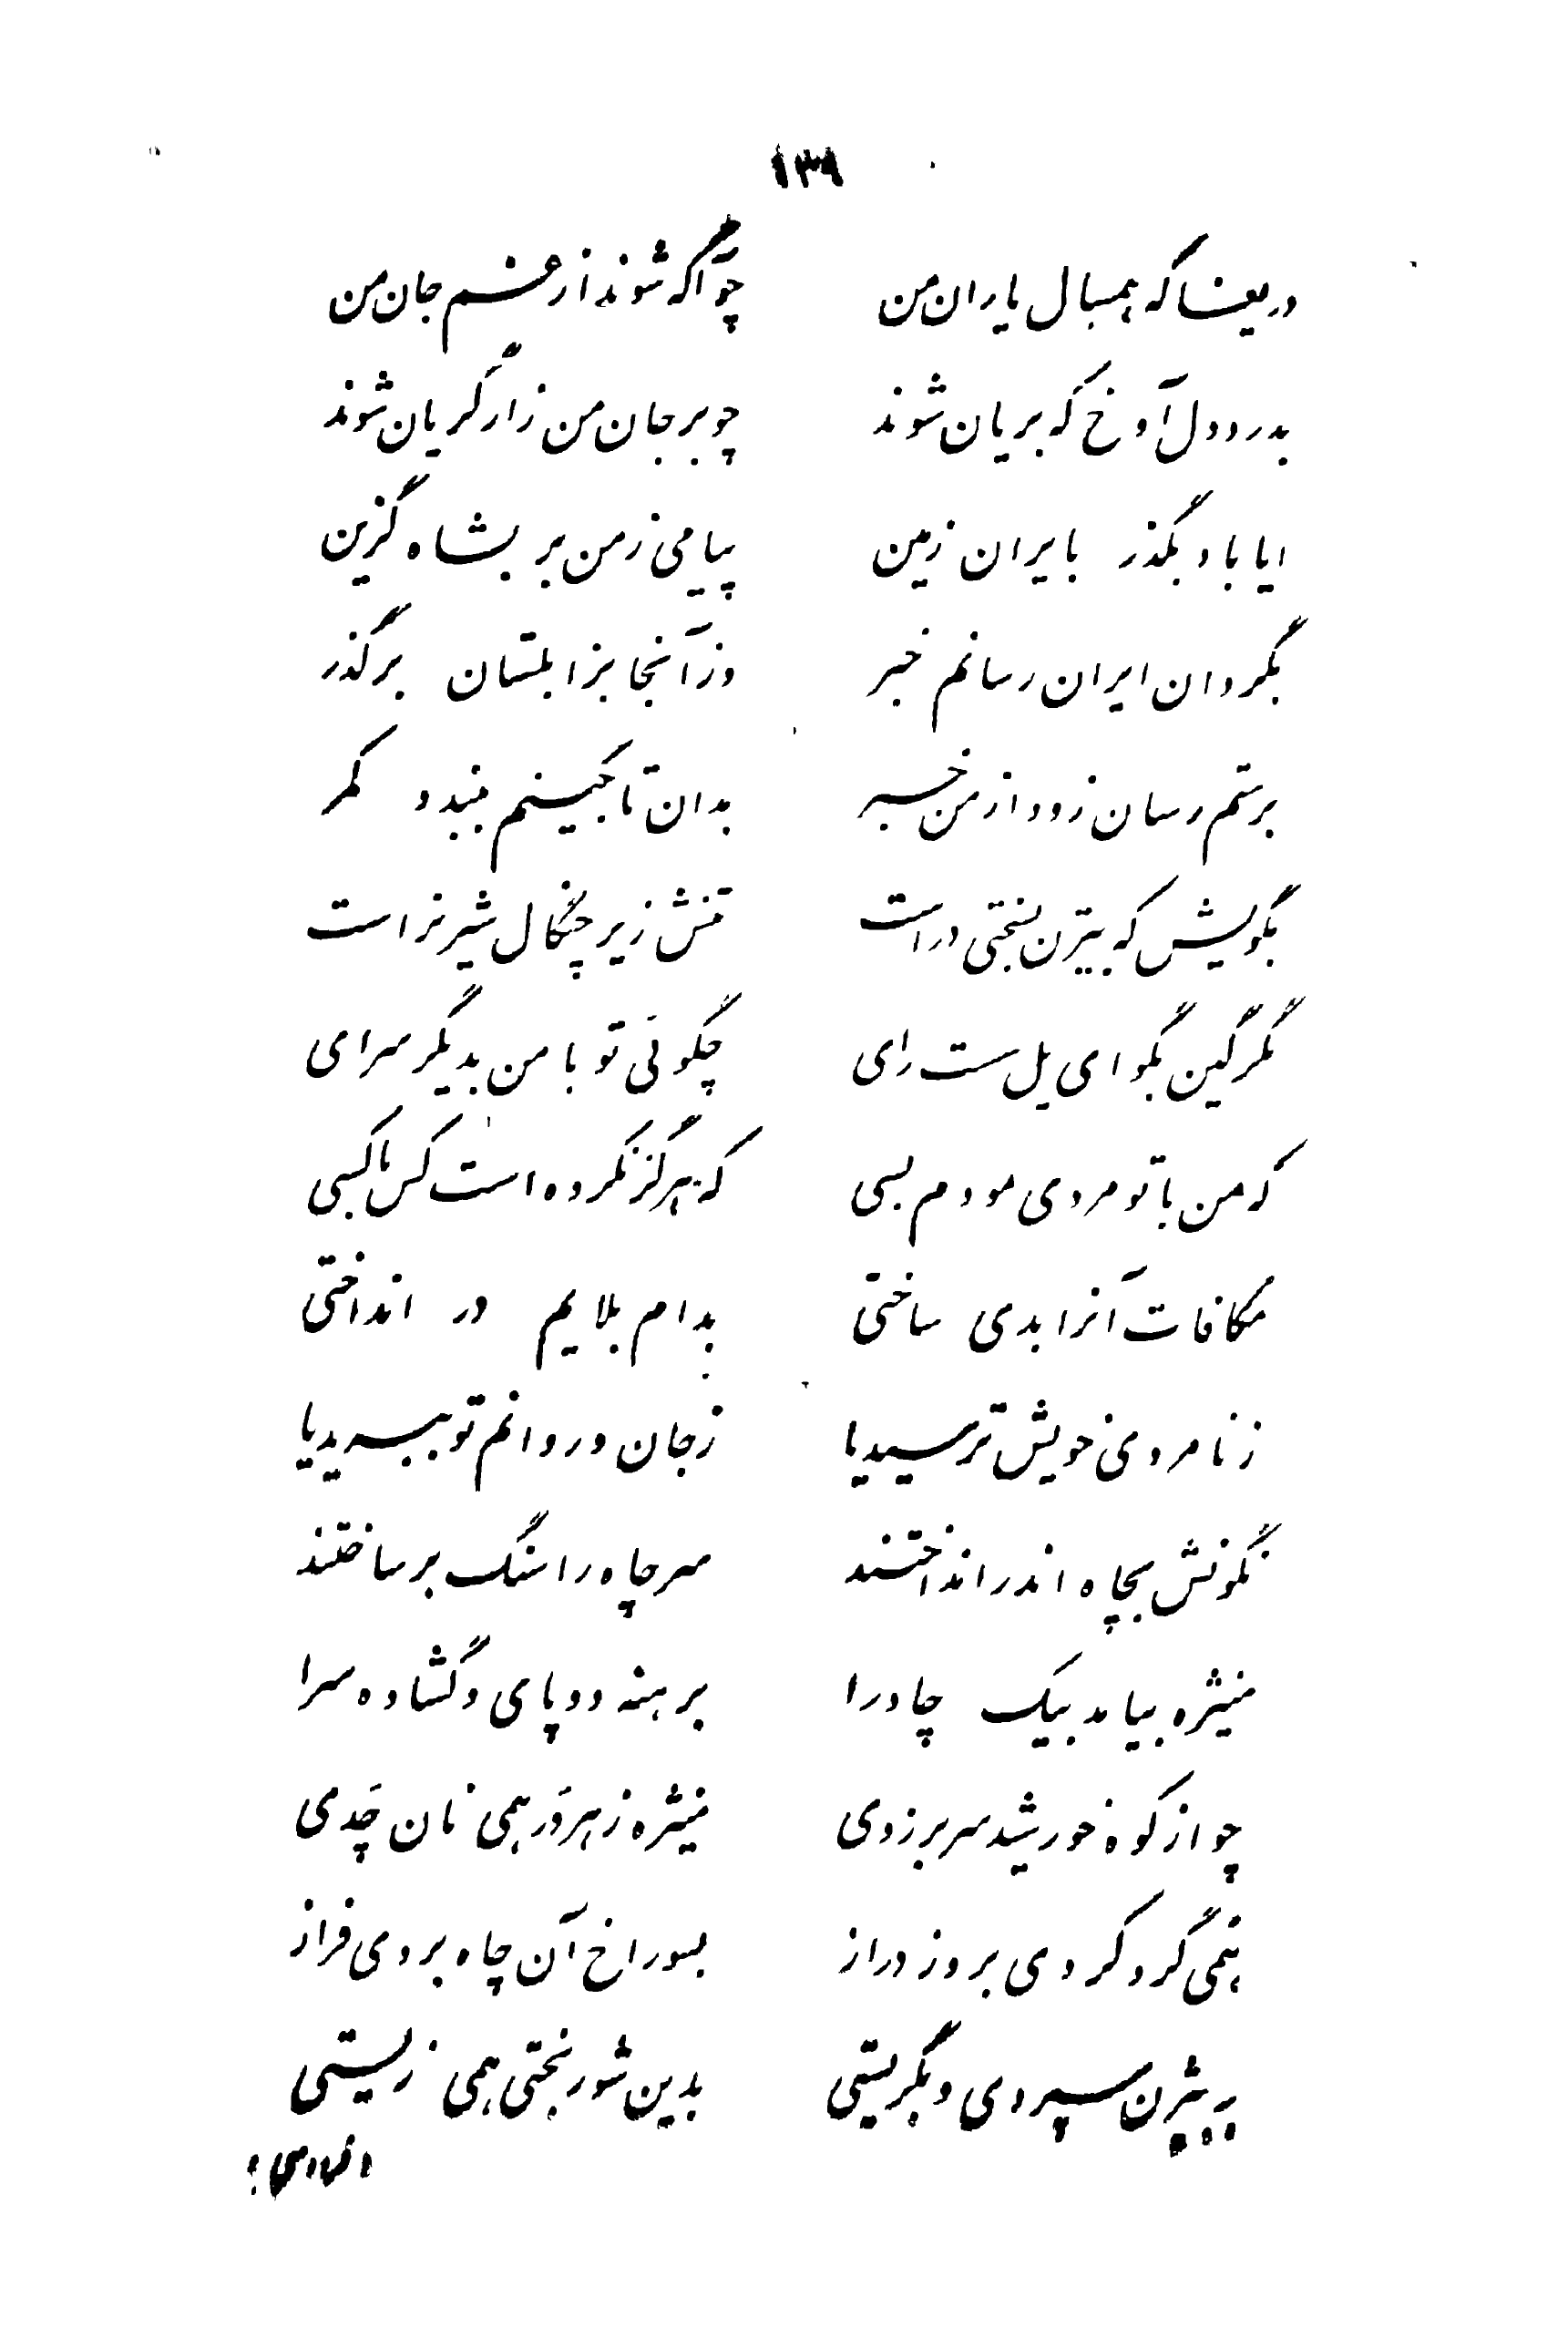 ١٣٩
دریغا که همسال یاران من چو آگه شوند از غم جان من
بدرد دل آوخ که بریان شوند چو بر جان من زار گریان شوند
ایا باد بگذر بایران زمین پیامی ز من بر بشاه گزین
بگردان ایران رسانم خبر وز آنجا بزابلستان برگذر
برستم رسان زود از من خبر بدان تا بکینم ببندد کمر
بگویش که بیژن بسختی در است تنش زیر چنگال شیر نر است
بگرگین بگو ای یل سست رای چگوئی تو با من بدیگر سرای
که من با تو مردی نمودم بسی که هرگز نکرده است کس با کسی
مکافات آنرا بدی ساختی بدام بلایم در انداختی
ز نامردی خویش ترسیدیا ز جان و روانم تو ببریدیا
نگونش بچاه اندر انداختند سر چاه را سنگ بر ساختند
منیژه بیامد بیک چادرا برهنه دو پای و گشاده سرا
چو از کوه خورشید سر برزدی منیژه ز هر در همی نان چدی
همی گرد کردی بروز دراز بسوراخ آن چاه بردی فراز
به بیژن سپردی و بگریستی بدین شور بختی همی زیستی